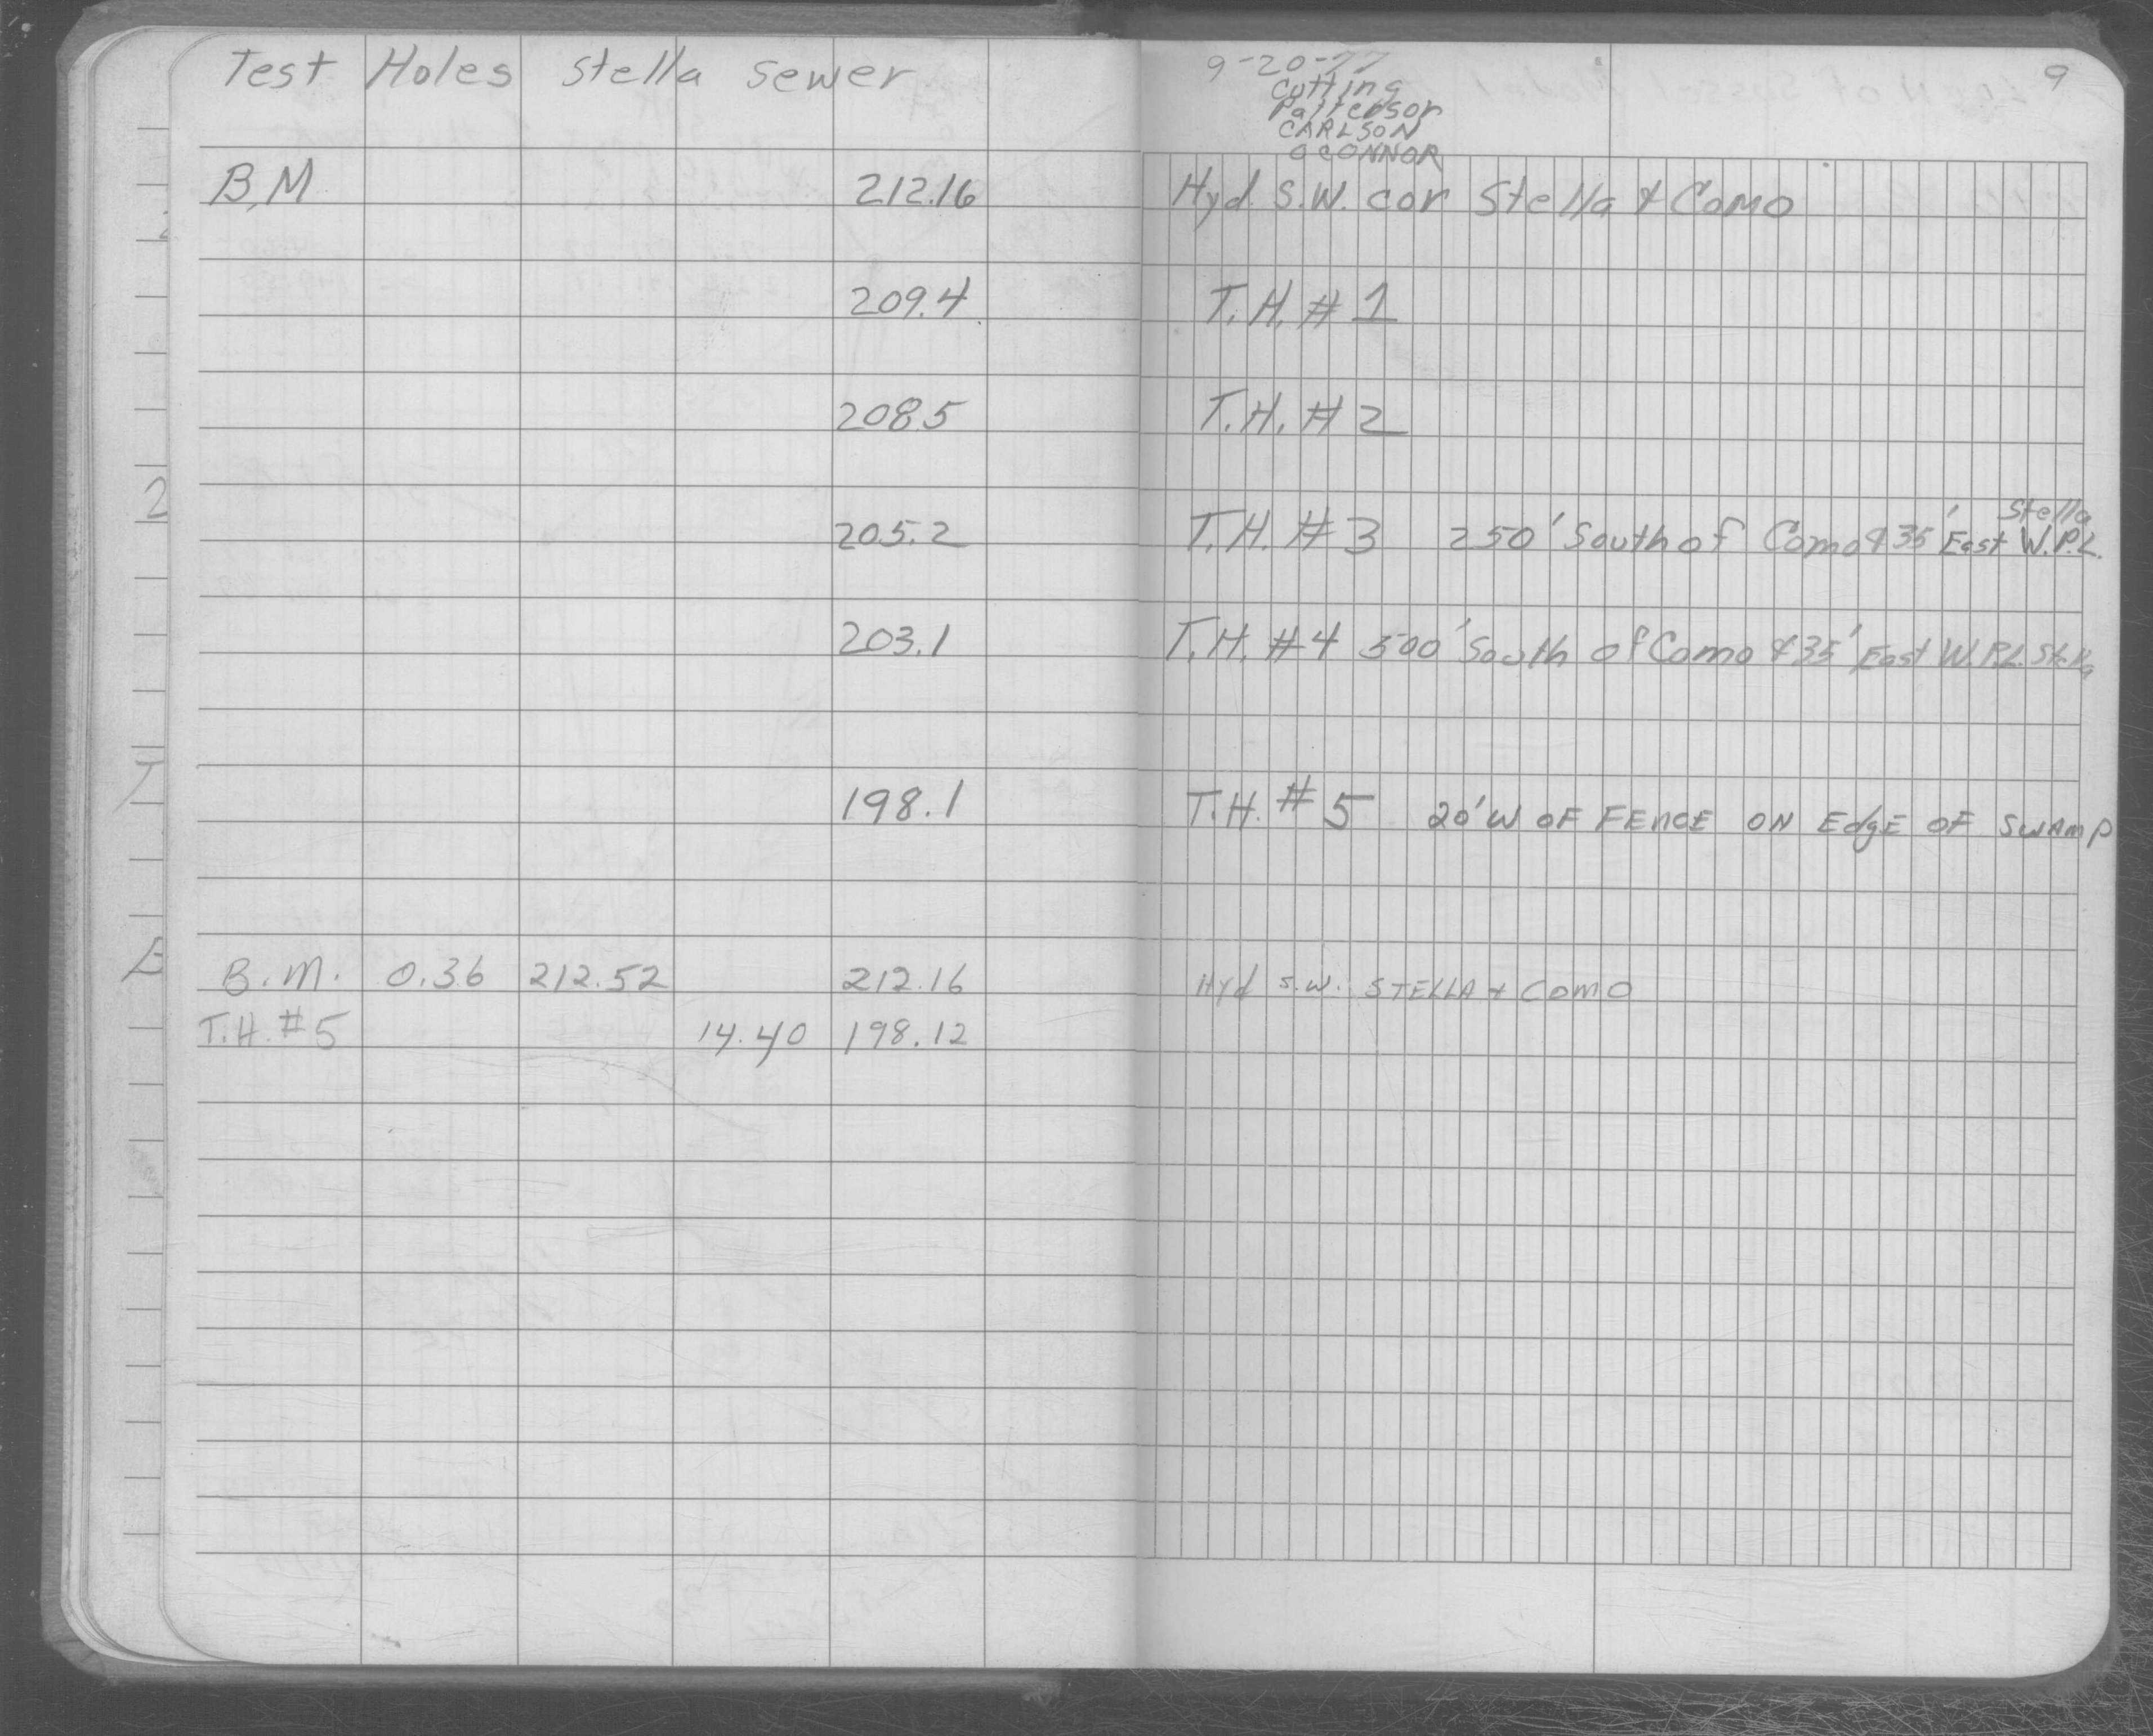 Test Holes Stella Sewer
B.M 212.16
209.4
208.5
205.2
203.1
198.1
B.M. 0.36 212.52 212.16
T.H. #5 14.40 198.12
9-20-77
9
Cutting
Patterson
CARLSON
OCONNOR
Hyd. S.W. cor Stella & Como
T.H. #1
T.H. #2
Stella
T.H. #3 250' South of Como & 35' East W.P.L.
T.H. #4 500' South of Como & 35' East W.P.L. Stella
T.H. #5 20' W OF FENCE ON EdgE OF SWAMP
Hyd S.W. STELLA + COMO